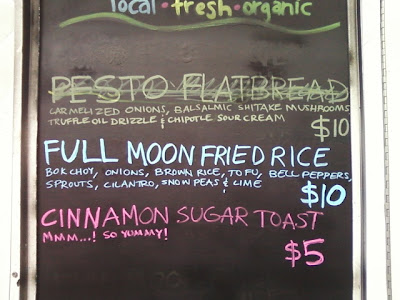 local · fresh · organic
PESTO FLATBREAD
CARMELIZED ONIONS, BALSALMIC SHITAKE MUSHROOMS
TRUFFLE OIL DRIZZLE & CHIPOTLE SOUR CREAM
$10
FULL MOON FRIED RICE
BOK CHOY, ONIONS, BROWN RICE, TOFU, BELL PEPPERS,
SPROUTS, CILANTRO, SNOW PEAS & LIME
$10
CINNAMON SUGAR TOAST
MMM...! SO YUMMY!
$5